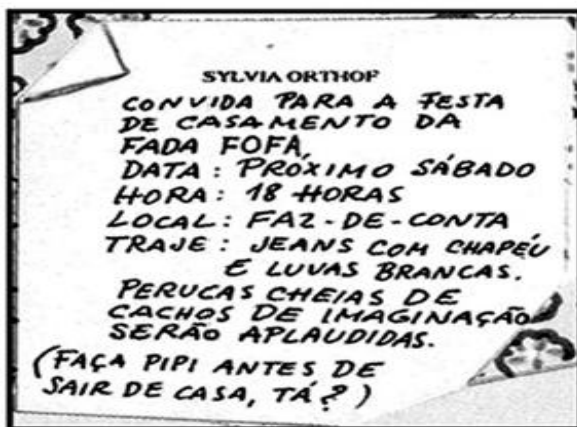 SYLVIA ORTHOF
CONVIDA PARA A FESTA
DE CASAMENTO DA
FADA FOFA,
DATA: PRÓXIMO SÁBADO
HORA: 18 HORAS
LOCAL: FAZ-DE-CONTA
TRAJE: JEANS COM CHAPÉU
E LUVAS BRANCAS.
PERUCAS CHEIAS DE
CACHOS DE IMAGINAÇÃO
SERÃO APLAUDIDAS.
(FAÇA PIPI ANTES DE
SAIR DE CASA, TÁ?)